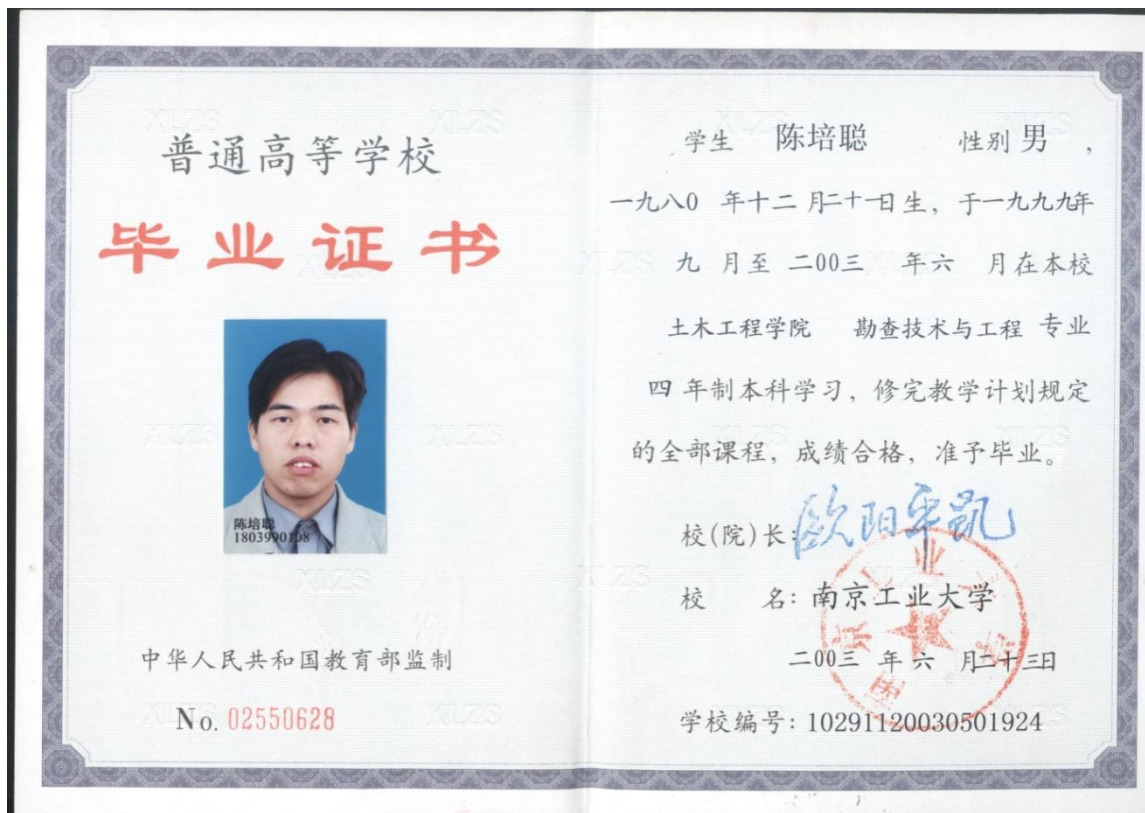 普通高等学校
毕业证书
陈培聪
1803990108
中华人民共和国教育部监制
No. 02550628
学生 陈培聪 性别 男 ,
一九八0 年十二 月二十一日生, 于一九九九年
九 月至 二00三 年六 月在本校
土木工程学院 勘查技术与工程 专业
四 年制本科学习, 修完教学计划规定
的全部课程, 成绩合格, 准予毕业。
校(院)长: 欧阳平凯
校 名: 南京工业大学
二00三 年 六 月二十三日
学校编号: 10291120030501924
XLZS
XLZS
XLZS
XLZS
XLZS
XLZS
XLZS
XLZS